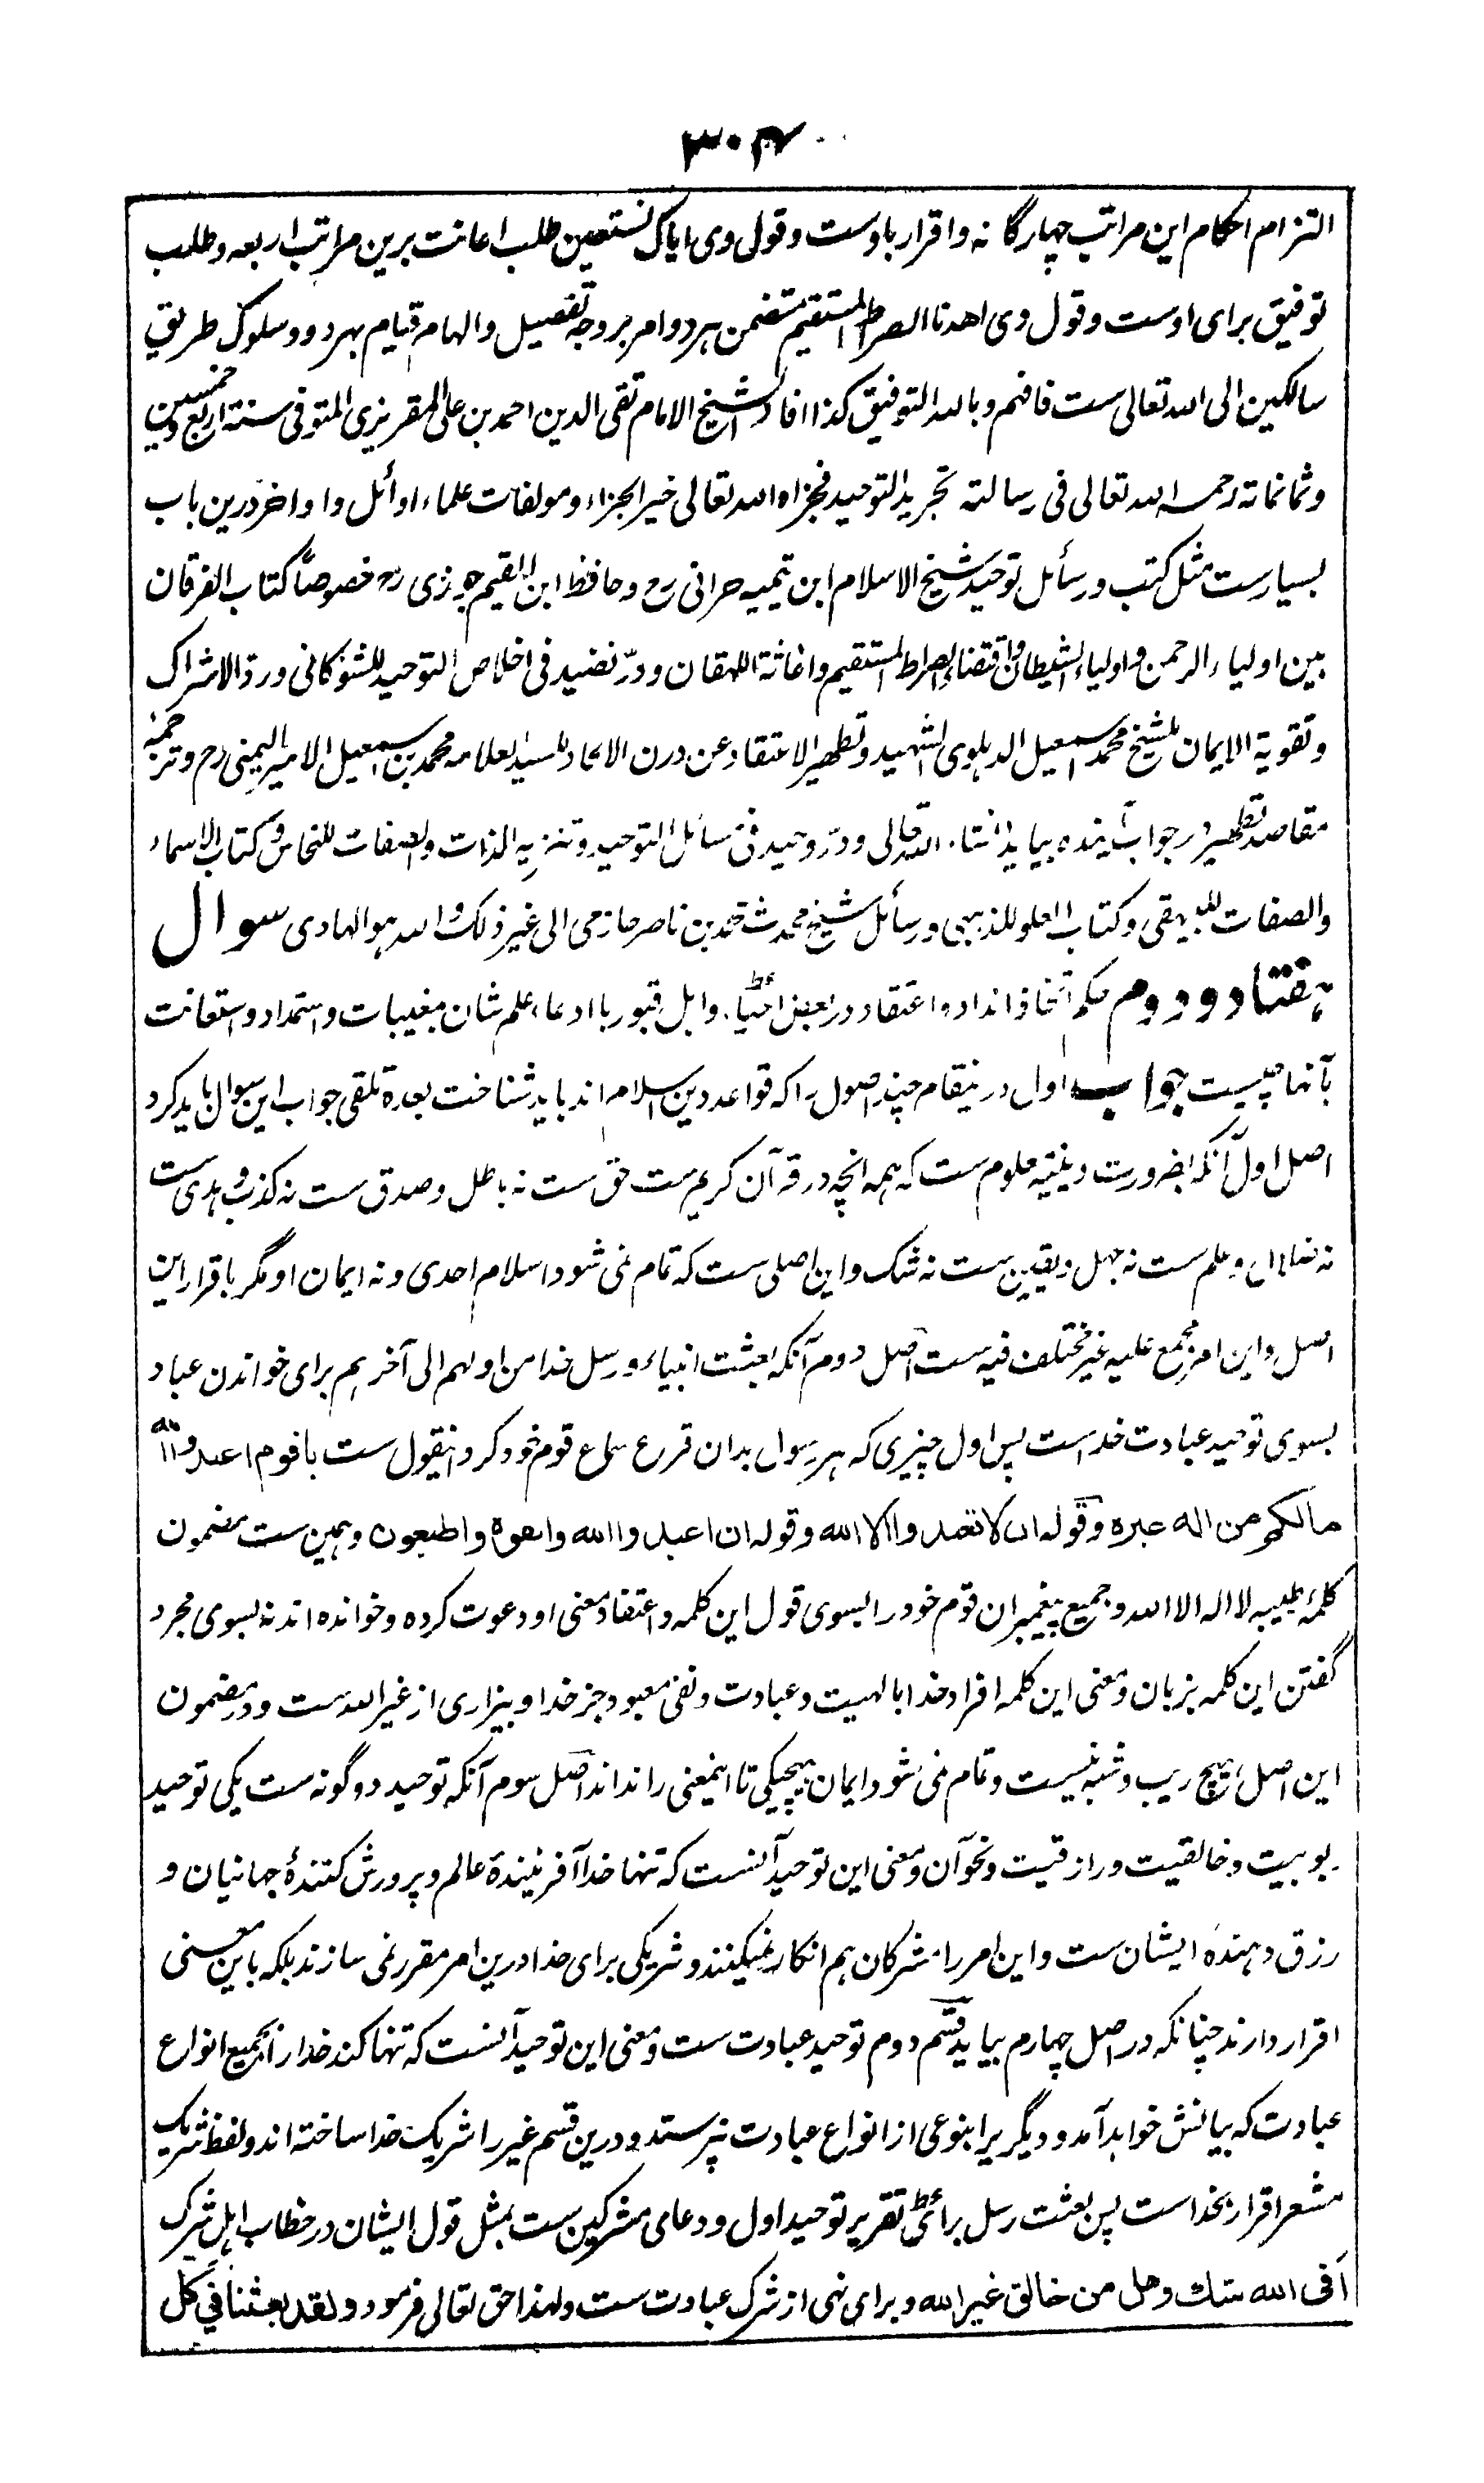 ۳۰۴
التزام احکام این مراتب چهارگانه و اقرار باوست و قول وی ایاک نستعین طلب اعانت برین مراتب اربعه و طلب
توفیق برای اوست و قول وی اهدنا الصراط المستقیم متضمن هر دو امر بر وجه تفصیل و الهام قیام بهر دو و سلوک طریق
سالکین الی الله تعالی ست فافهم و بالله التوفیق کذا افاد الشیخ الامام تقی الدین احمد بن علی المقریزی المتوفی سنة اربع و خمسین
و ثمانمائة رحمه الله تعالی فی رسالته تجرید التوحید فجزاه الله تعالی خیر الجزاء و مولفات علماء اوائل و اواخر درین باب
بسیارست مثل کتب و رسائل توحید شیخ الاسلام ابن تیمیه حرانی رح و حافظ ابن القیم جوزی رح خصوصاً کتاب الفرقان
بین اولیاء الرحمن و اولیاء الشیطان و اقتضاء الصراط المستقیم و اغاثة اللهفان و درّ نضید فی اخلاص التوحید للشوکانی و رد الاشراک
و تقویة الایمان للشیخ محمد اسمعیل الدهلوی الشهید و تطهیر الاعتقاد عن درن الالحاد للسید العلامه محمد بن اسمعیل الامیر الیمنی رح و ترجمه
مقاصد تطهیر در جواب آینده بیاید انشاء الله تعالی و درّ وحید فی مسائل التوحید و تنزیه الذات و الصفات للنحاس و کتاب الاسماء
و الصفات للبیهقی و کتاب العلو للذهبی و رسائل شیخ محدث محمد بن ناصر حازمی الی غیر ذلک و الله هو الهادی سوال
هفتاد و دوم حکم اتخاذ انداد و اعتقاد در بعض احیاء و اهل قبور با ادعاء علم شان مغیبات و استمداد و استعانت
بآنها چیست جواب اول درینمقام چند اصول را که قواعد دین اسلام اند باید شناخت بعده تلقی جواب این سوال باید کرد
اصل اول آنکه بضرورت دینیه معلوم ست که همه انچه در قرآن کریم ست حق ست نه باطل و صدق ست نه کذب و هدی ست
نه ضلال و علم ست نه جهل و یقین ست نه شک و این اصلی ست که تمام نمی شود اسلام احدی و نه ایمان او مگر باقرار این
اصل و این امر مجمع علیه غیر مختلف فیه ست اصل دوم آنکه بعثت انبیاء و رسل خدا من اولهم الی آخرهم برای خواندن عباد
بسوی توحید عبادت خداست پس اول چیزی که هر رسول بدان قرع سماع قوم خود کرد اینقول ست یا قوم اعبدوا الله
مالکم من اله غیره و قوله ان لا تعبدوا الا الله و قوله ان اعبدوا الله واتقوه واطیعون و همین ست مضمون
کلمهٔ طیبه لا اله الا الله و جمیع پیغمبران قوم خود را بسوی قول این کلمه و اعتقاد معنی او دعوت کرده و خوانده اند نه بسوی مجرد
گفتن این کلمه بزبان و معنی این کلمه افراد خدا بالهیت و عبادت و نفی معبود جز خدا و بیزاری از غیر الله ست و در مضمون
این اصل هیچ ریب و شبه نیست و تمام نمی شود ایمان هیچیکی تا اینمعنی را نداند اصل سوم آنکه توحید دو گونه ست یکی توحید
ربوبیت و خالقیت و رازقیت و نحو آن و معنی این توحید آنست که تنها خدا آفرینندهٔ عالم و پرورش کنندهٔ جهانیان و
رزق دهندهٔ ایشان ست و این امر را مشرکان هم انکار نمیکنند و شریکی برای خدا درین امر مقرر نمی سازند بلکه باین معنی
اقرار دارند چنانکه در اصل چهارم بیاید قسم دوم توحید عبادت ست و معنی این توحید آنست که تنها کند خدا را بجمیع انواع
عبادت که بیانش خواهد آمد و دیگر یرا بنوعی از انواع عبادت نپرستد و درین قسم غیر را شریک خدا ساخته اند و لفظ شریک
مشعر اقرار بخداست پس بعثت رسل برای تقریر توحید اول و دعای مشرکین ست بمثل قول ایشان در خطاب اهل شرک
افی الله شک و هل من خالق غیر الله و برای نهی از شرک عبادت ست و لهذا حق تعالی فرمود و لقد بعثنا فی کل